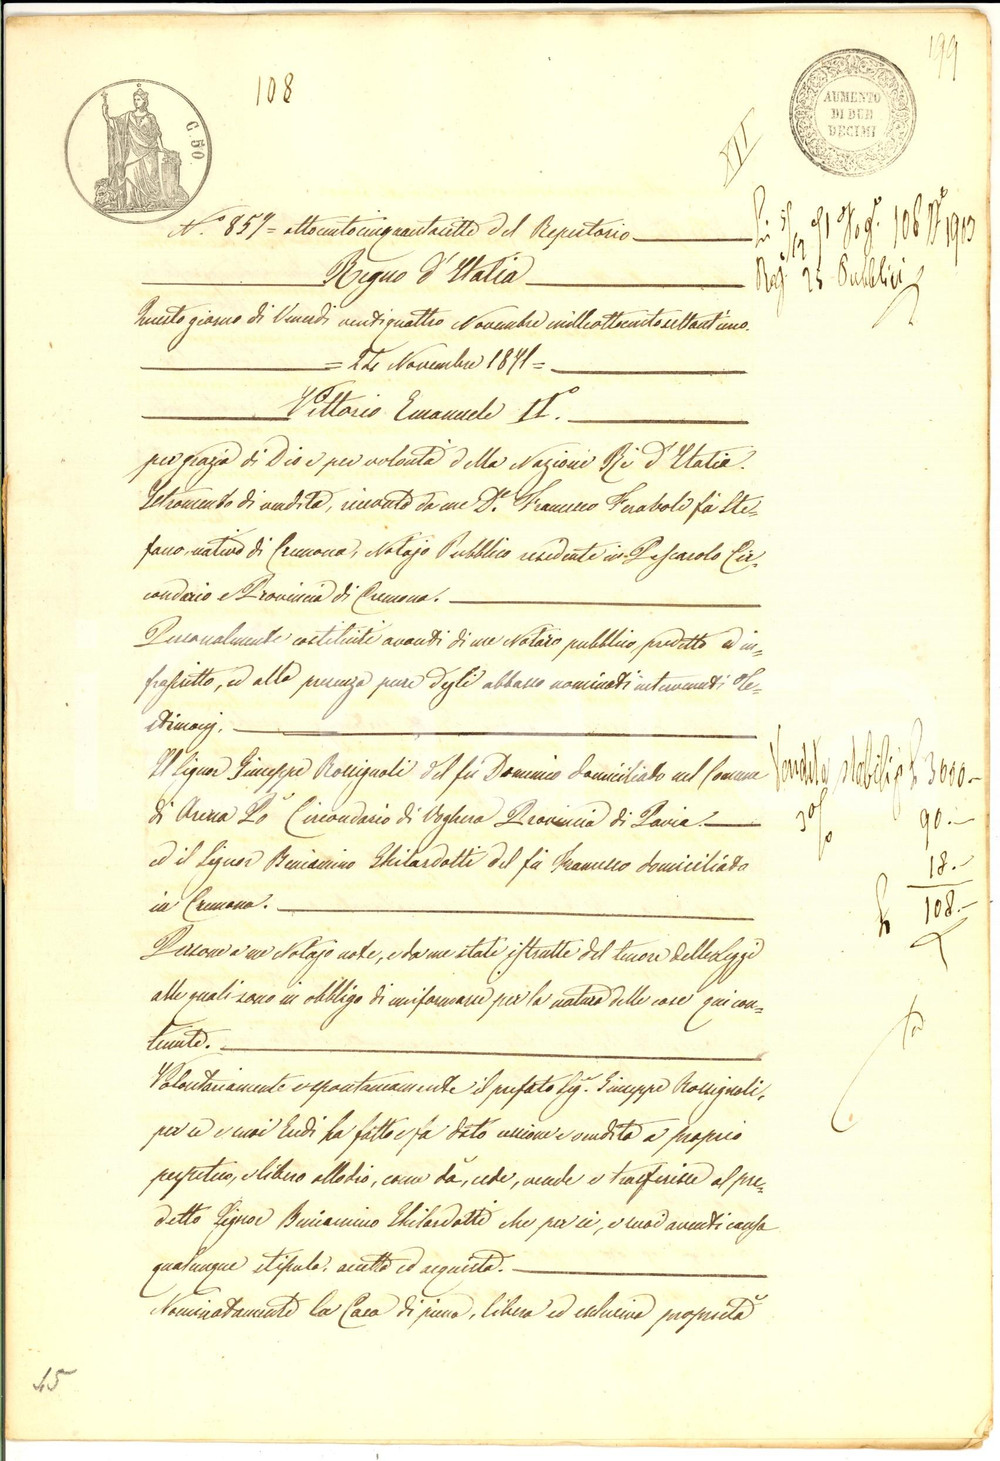 199
108
C. 50.
AUMENTO
DI DUE
DECIMI
XII
N.° 857 = ottocentocinquantasette del Repertorio
Regno d'Italia
Questo giorno di Venerdì ventiquattro Novembre milleottocentosettantuno.
= 24 Novembre 1871 =
Vittorio Emanuele II°.
per grazia di Dio e per volontà della Nazione Rè d'Italia.
Istromento di vendita, ricevuto da me Dr. Francesco Feraboli fù Ste=
fano, nativo di Cremona, Notajo Pubblico residente in Pescarolo Cir=
condario e Provincia di Cremona.
Personalmente costituiti avanti di me Notaro pubblico, predetto ed in=
frascritto, ed alla presenza pure degli abbasso nominati intervenuti Te=
stimonj.
Il Signor Giuseppe Rossignoli del fu Domenico domiciliato nel Comune
di Arena Pò Circondario di Voghera Provincia di Pavia.
ed il Signor Beniamino Ghilardotti del fù Francesco domiciliato
in Cremona.
Persone a me Notajo note, e da me state istrutte del tenore delle Leggi
alle quali sono in obbligo di uniformarsi per la natura delle cose qui con=
tenute.
Volontariamente e spontaneamente il prefato Sig.r Giuseppe Rossignoli,
per se e suoi Eredi ha fatto e fa dato cessione e vendita a proprio
perpetuo, e libero allodio, come dà, cede, vende e trasferisce al pre=
detto Signor Beniamino Ghilardotti che per sè, e suoi aventi causa
qualunque stipula, accetta ed acquista.
Nominatamente la Casa di piena, libera ed esclusiva proprietà
108 N° 1913
Reg.° 25 Pubblici
Vendita stabili £ 3000.-
3% 90.-
18.-
£ 108.-
45